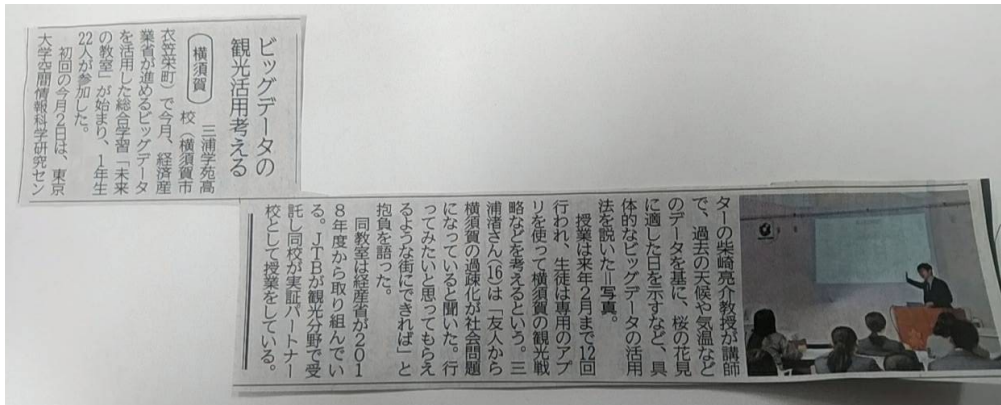 ビッグデータの
観光活用考える
横須賀
三浦学苑高
校（横須賀市
衣笠栄町）で今月、経済産
業省が進めるビッグデータ
を活用した総合学習「未来
の教室」が始まり、1年生
22人が参加した。
初回の今月2日は、東京
大学空間情報科学研究セン
ターの柴崎亮介教授が講師
で、過去の天候や気温など
のデータを基に、桜の花見
に適した日を示すなど、具
体的なビッグデータの活用
法を説いた＝写真。
授業は来年2月まで12回
行われ、生徒は専用のアプ
リを使って横須賀の観光戦
略などを考えるという。三
浦渚さん（16）は「友人から
横須賀の過疎化が社会問題
になっていると聞いた。行
ってみたいと思ってもらえ
るような街にできれば」と
抱負を語った。
同教室は経産省が201
8年度から取り組んでい
る。JTBが観光分野で受
託し同校が実証パートナー
校として授業をしている。